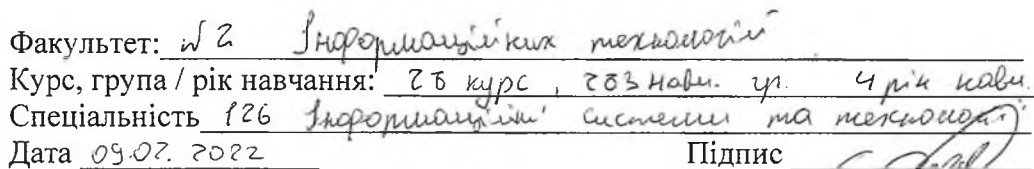 Факультет: №2 Інформаційних технологій
Курс, група / рік навчання: 2Б курс, 2Б3 навч. гр. 4 рік навч.
Спеціальність 126 Інформаційні системи та технології
Дата 09.02.2022 Підпис